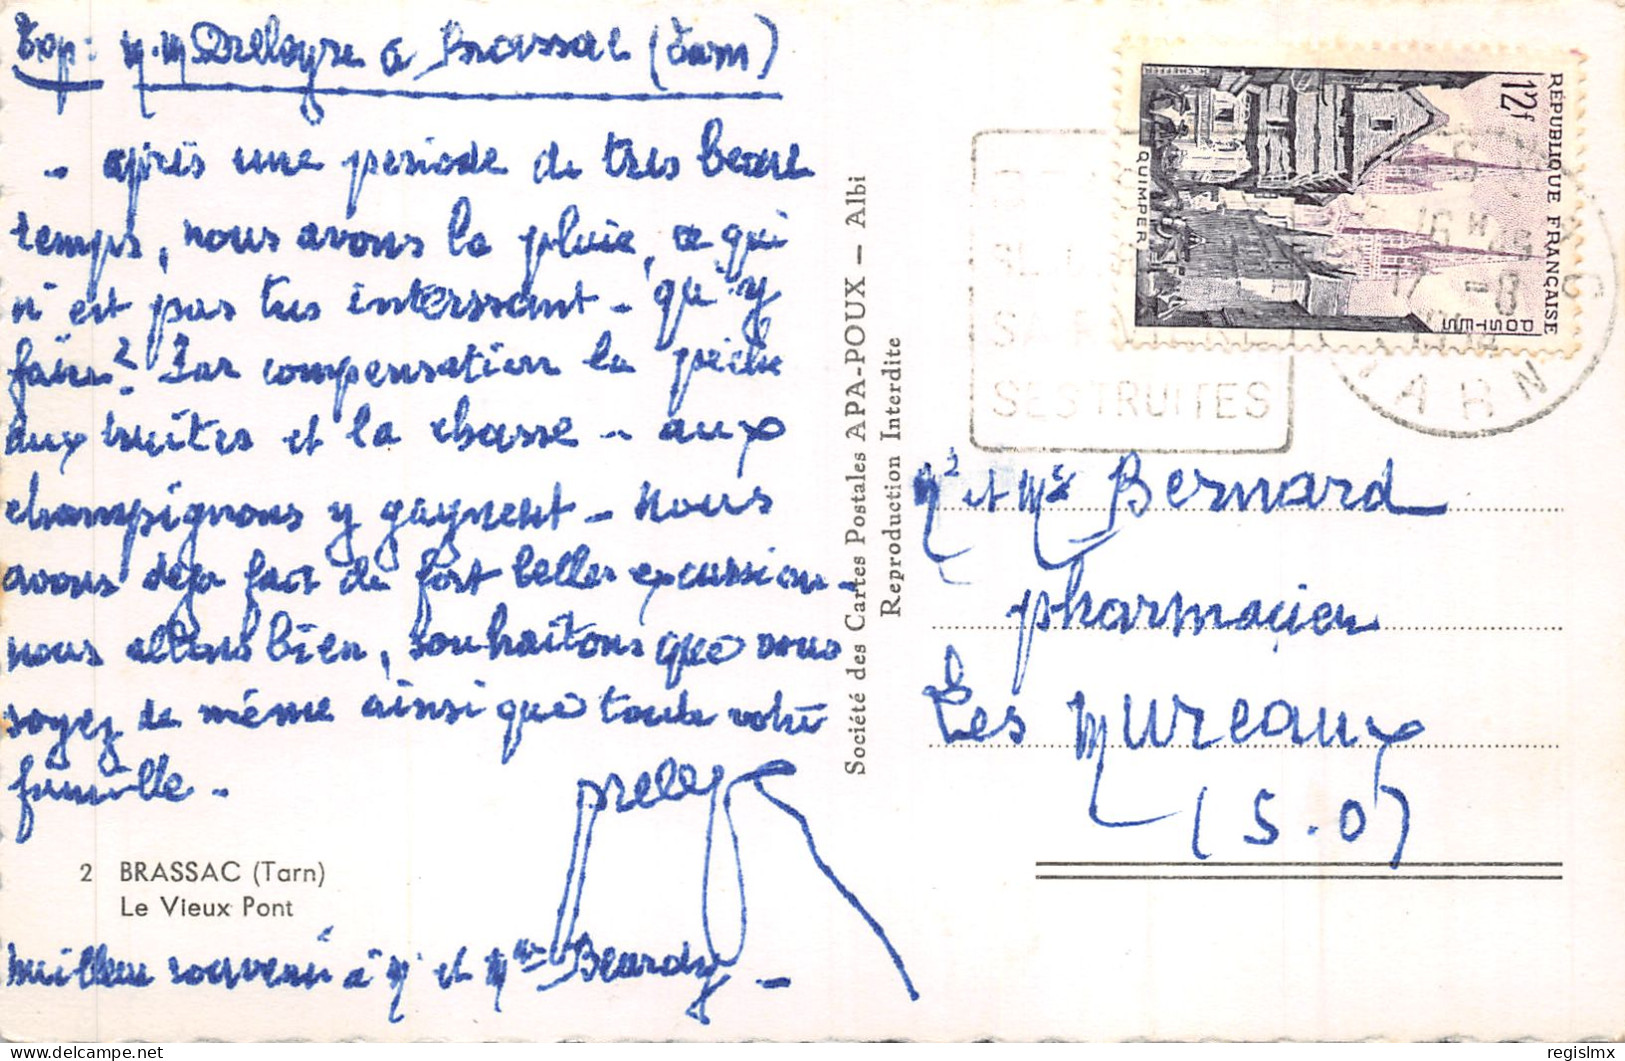 Exp: M. M Delayre à Brassac (Tarn)
- après une periode de tres beau
temps, nous avons la pluie, ce qui
n'est pas tres interssant - qu'y
faire? Par compensation la pêche
aux truites et la chasse - aux
champignons y gagnent - nous
avons deja fait de fort belles excursions -
nous allons bien, souhaitons que vous
soyez de même ainsi que toute votre
famille -
2 BRASSAC (Tarn)
Le Vieux Pont
meilleur souvenir à M et Mme Beardy -
Société des Cartes Postales APA-POUX — Albi
Reproduction Interdite
RÉPUBLIQUE FRANÇAISE
12f
POSTES
QUIMPER
SES TRUITES
TARN
17 -8
Mr et Mme Bernard
pharmacien
Les Mureaux
(S.O)
delcampe.net
regislmx